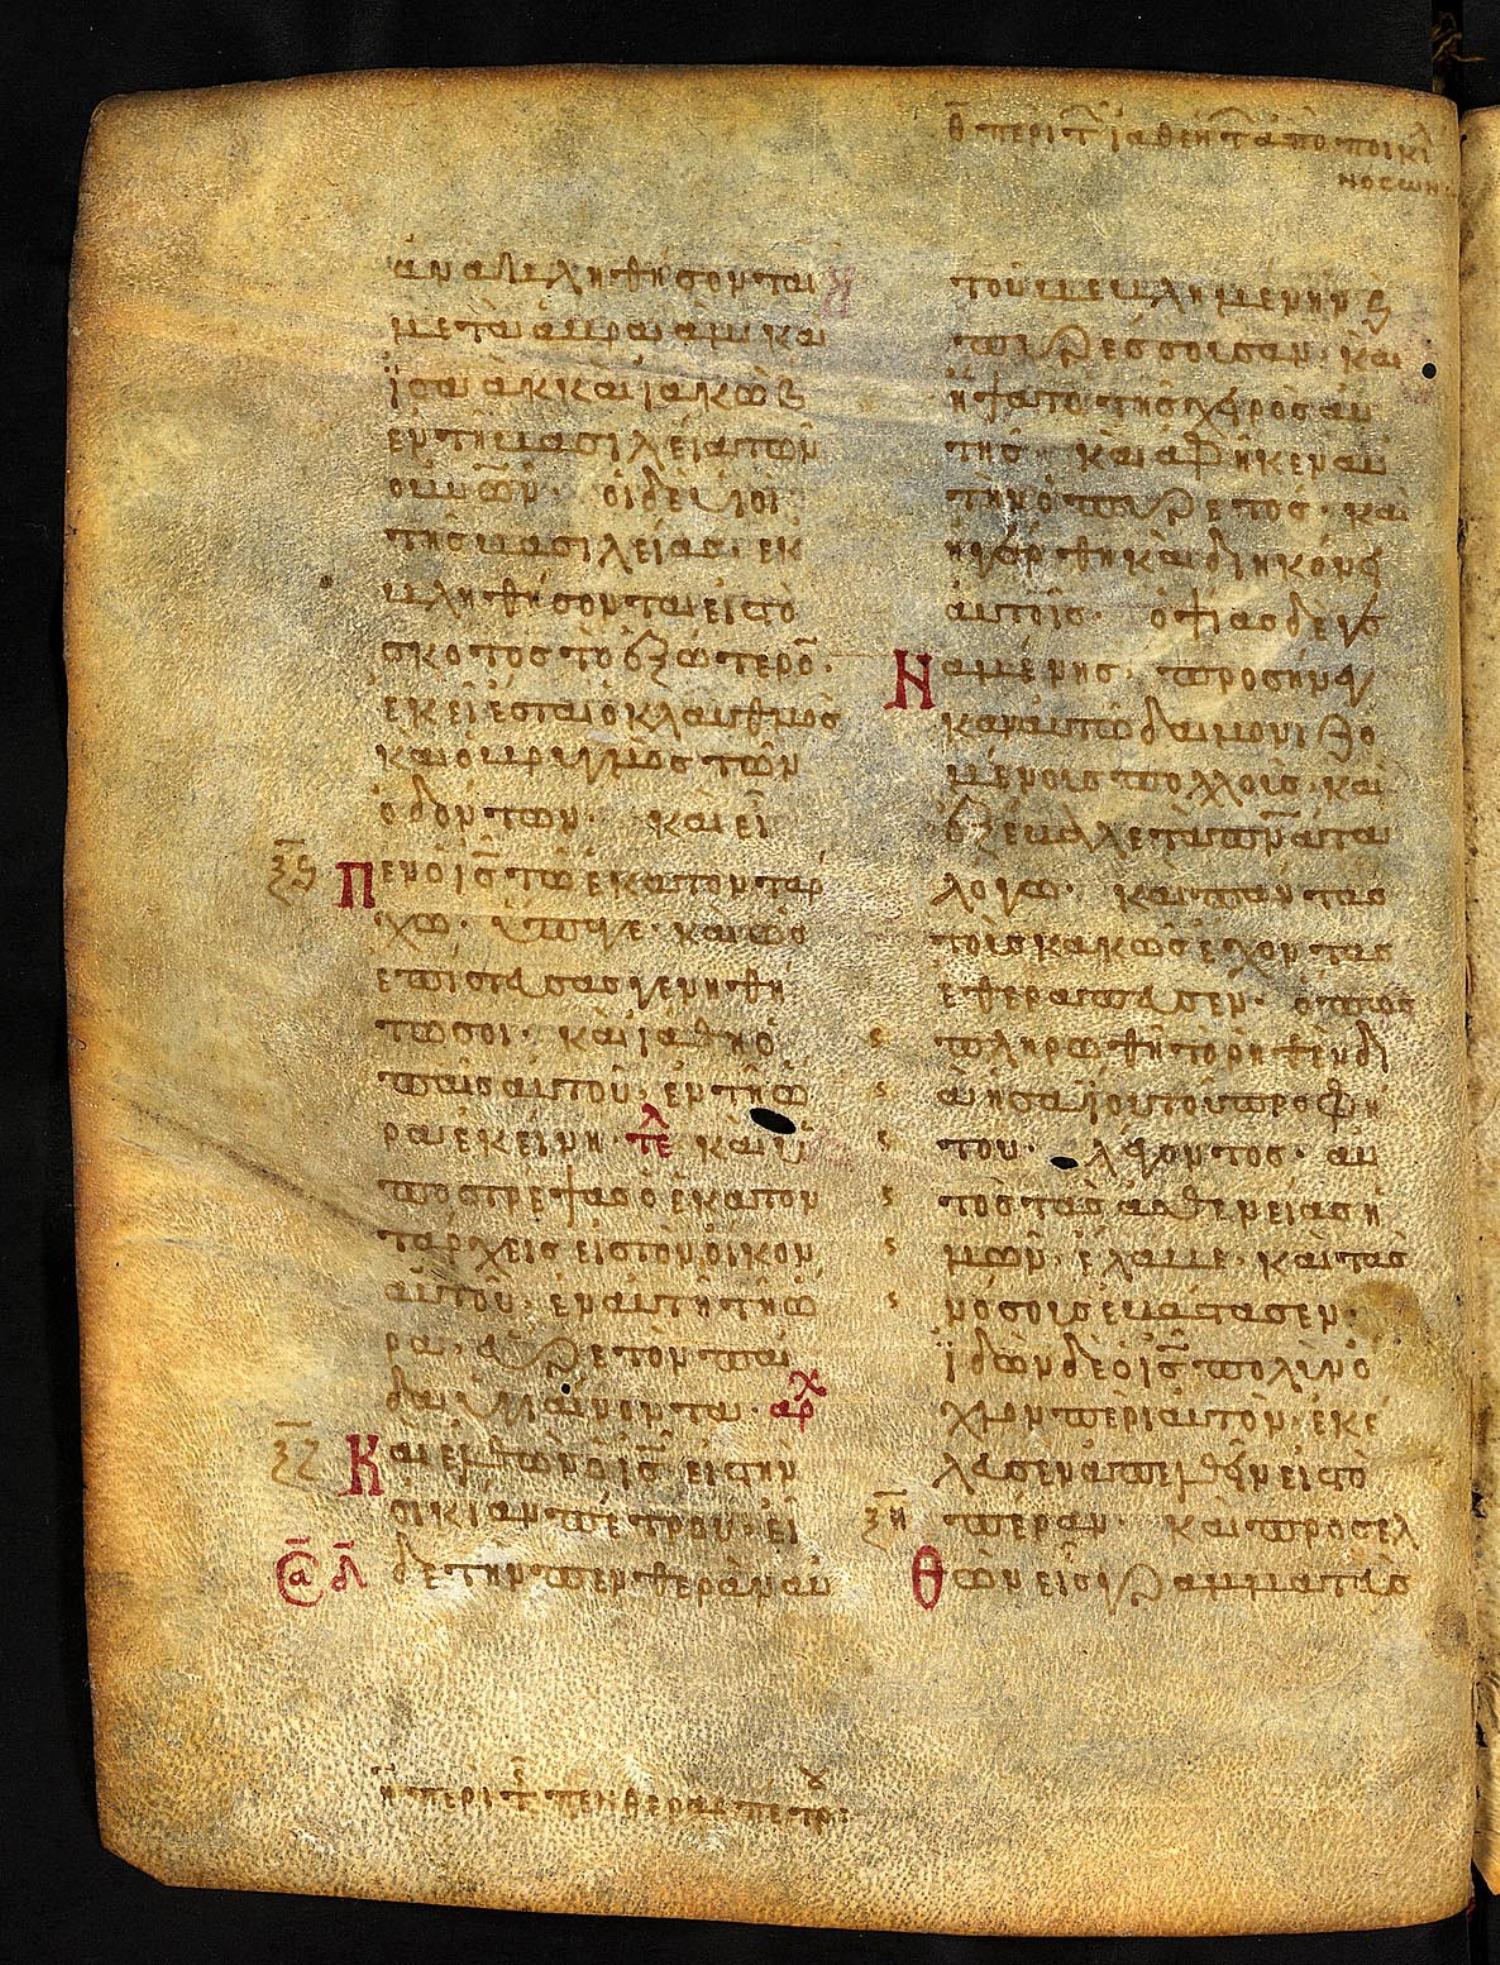 θ̄ περι τ̑ ἰαθεντ̑ ἀπο ποικιλ
νοσων·
ἀνακληθήσονται
μετὰ ἀβραὰμ και
ἰ̈σαὰκ και ἰακὼβ
ἐν τῆ βασιλεία τῶν
οὐν̅ῶν· οἱ δὲ υἱοὶ
τῆς βασιλείας· ἐκ
βληθήσονται εἰς τὸ
σκότος τὸ ἐξώτερο̅·
ἐκεῖ ἔσται ὁ κλαυθμὸς
και ὁ βρυγμὸς τῶν
ὀδόντων· και εἶ
ξ̅ς̅ Πεν ὁ ι̅ς̅ τῶ ἑκατοντάρ
χω· ὕπαγε· και ὡς
ἐπίστευσας γενηθή
τω σοι· και ἰάθη ὁ
παῖς αὐτοῦ· ἐν τῆ ὥ
ρα ἐκείνη· τελ και ὑ
ποστρέψας ὁ ἑκατον
τάρχεις εἰς τὸν οἶκον
αὐτοῦ· ἐν αὐτῆ τῆ ὥ
ρα· εὗρε τὸν παῖ
δα ὑγιαίνοντα· αρχ
ξ̅ζ̅ Και ἐλθὼν ὁ ι̅ς̅ εἰς τὴν
οἰκίαν πέτρου· εἶ
δε τὴν πενθερὰν αὐ
τοῦ βεβλημένην κ
πυρέσσουσαν· και
ἥψατο τῆς χειρὸς αὐ
τῆς· και ἀφῆκεν αὐ
τὴν ὁ πυρετός· και
ἠγέρθη και διηκόνει
αὐτοῖς· ὀψίας δὲ γε
Ναμένης· προσήνεγ
καν αὐτῶ δαιμονιζο
μένοις πολλοὺς· και
ἐξέβαλε τὰ πν̅α̅τα
λόγω· και πάντας
τοὺς κακῶς ἔχοντας
ἐθεράπευσεν· ὅπως
πληρωθῆ τὸ ρηθὲν δι
ὰ ἡσαΐου τοῦ προφή
του· λέγοντος· αὐ
τὸς τὰς ἀσθενείας ἡ
μῶν· ἔλαβε· και τὰς
νόσους ἐβάστασεν·
ἰ̈δὼν δὲ ὁ ι̅ς̅ πολὺν ὄ
χλον περὶ αὐτὸν· ἐκέ
λευσεν ἀπελθεῖν εἰς τὸ
ξ̅η̅ πέραν· και προσελ
Θὼν εἷς γραμματεὺς
η̅ περι τ̑ς πενθερας πετρου: